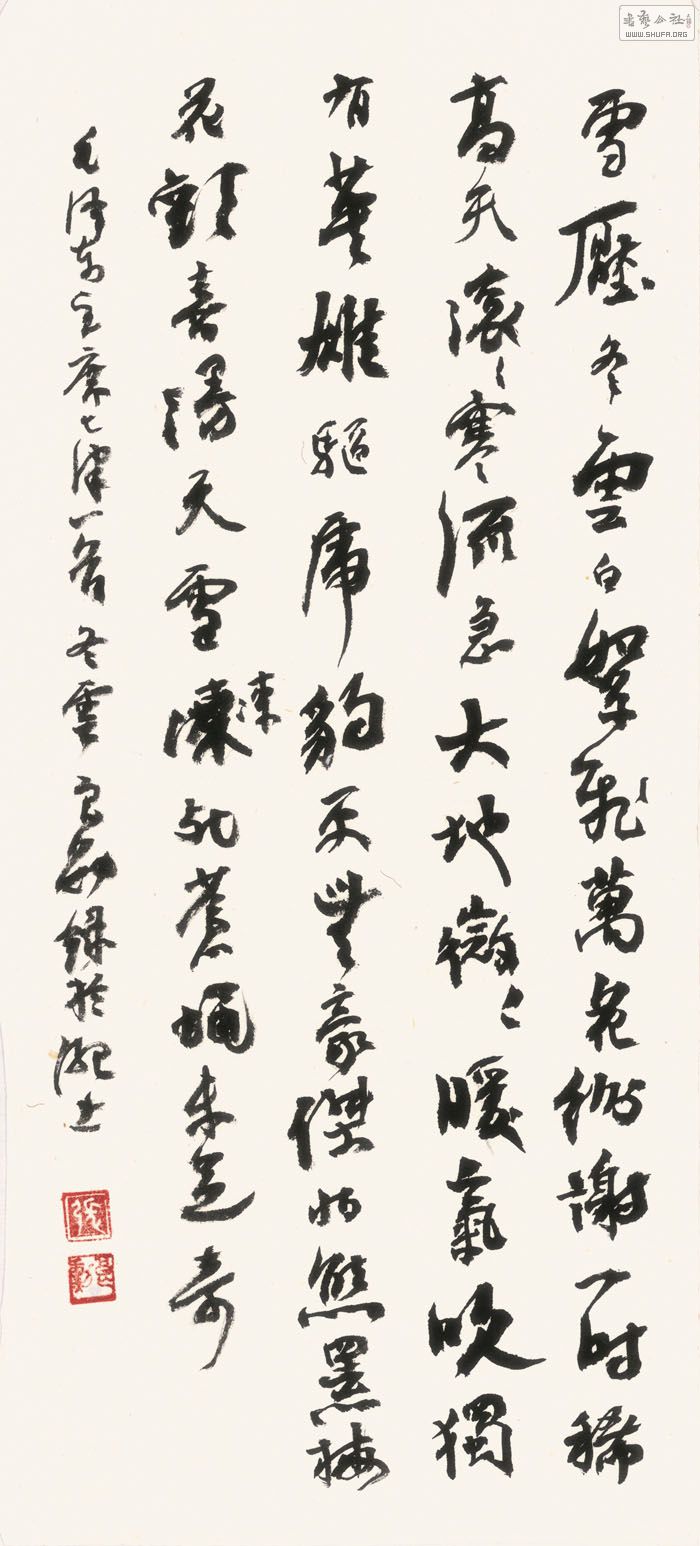 雪壓冬雲白絮飛萬花紛謝一時稀
高天滾〻寒流急大地微〻暖氣吹獨
有英雄驅虎豹更無豪傑怕熊羆梅
花歡喜漫天雪凍死蒼蠅未足奇
凍
毛澤東主席七律一首冬雲良勛錄於滬上
張
良勛
書藝公社
WWW.SHUFA.ORG